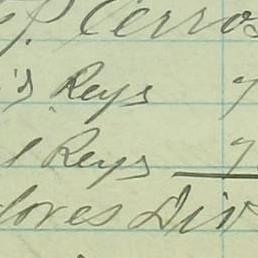 P. Cerros
's Reys 7
l Reys 7
lores Div